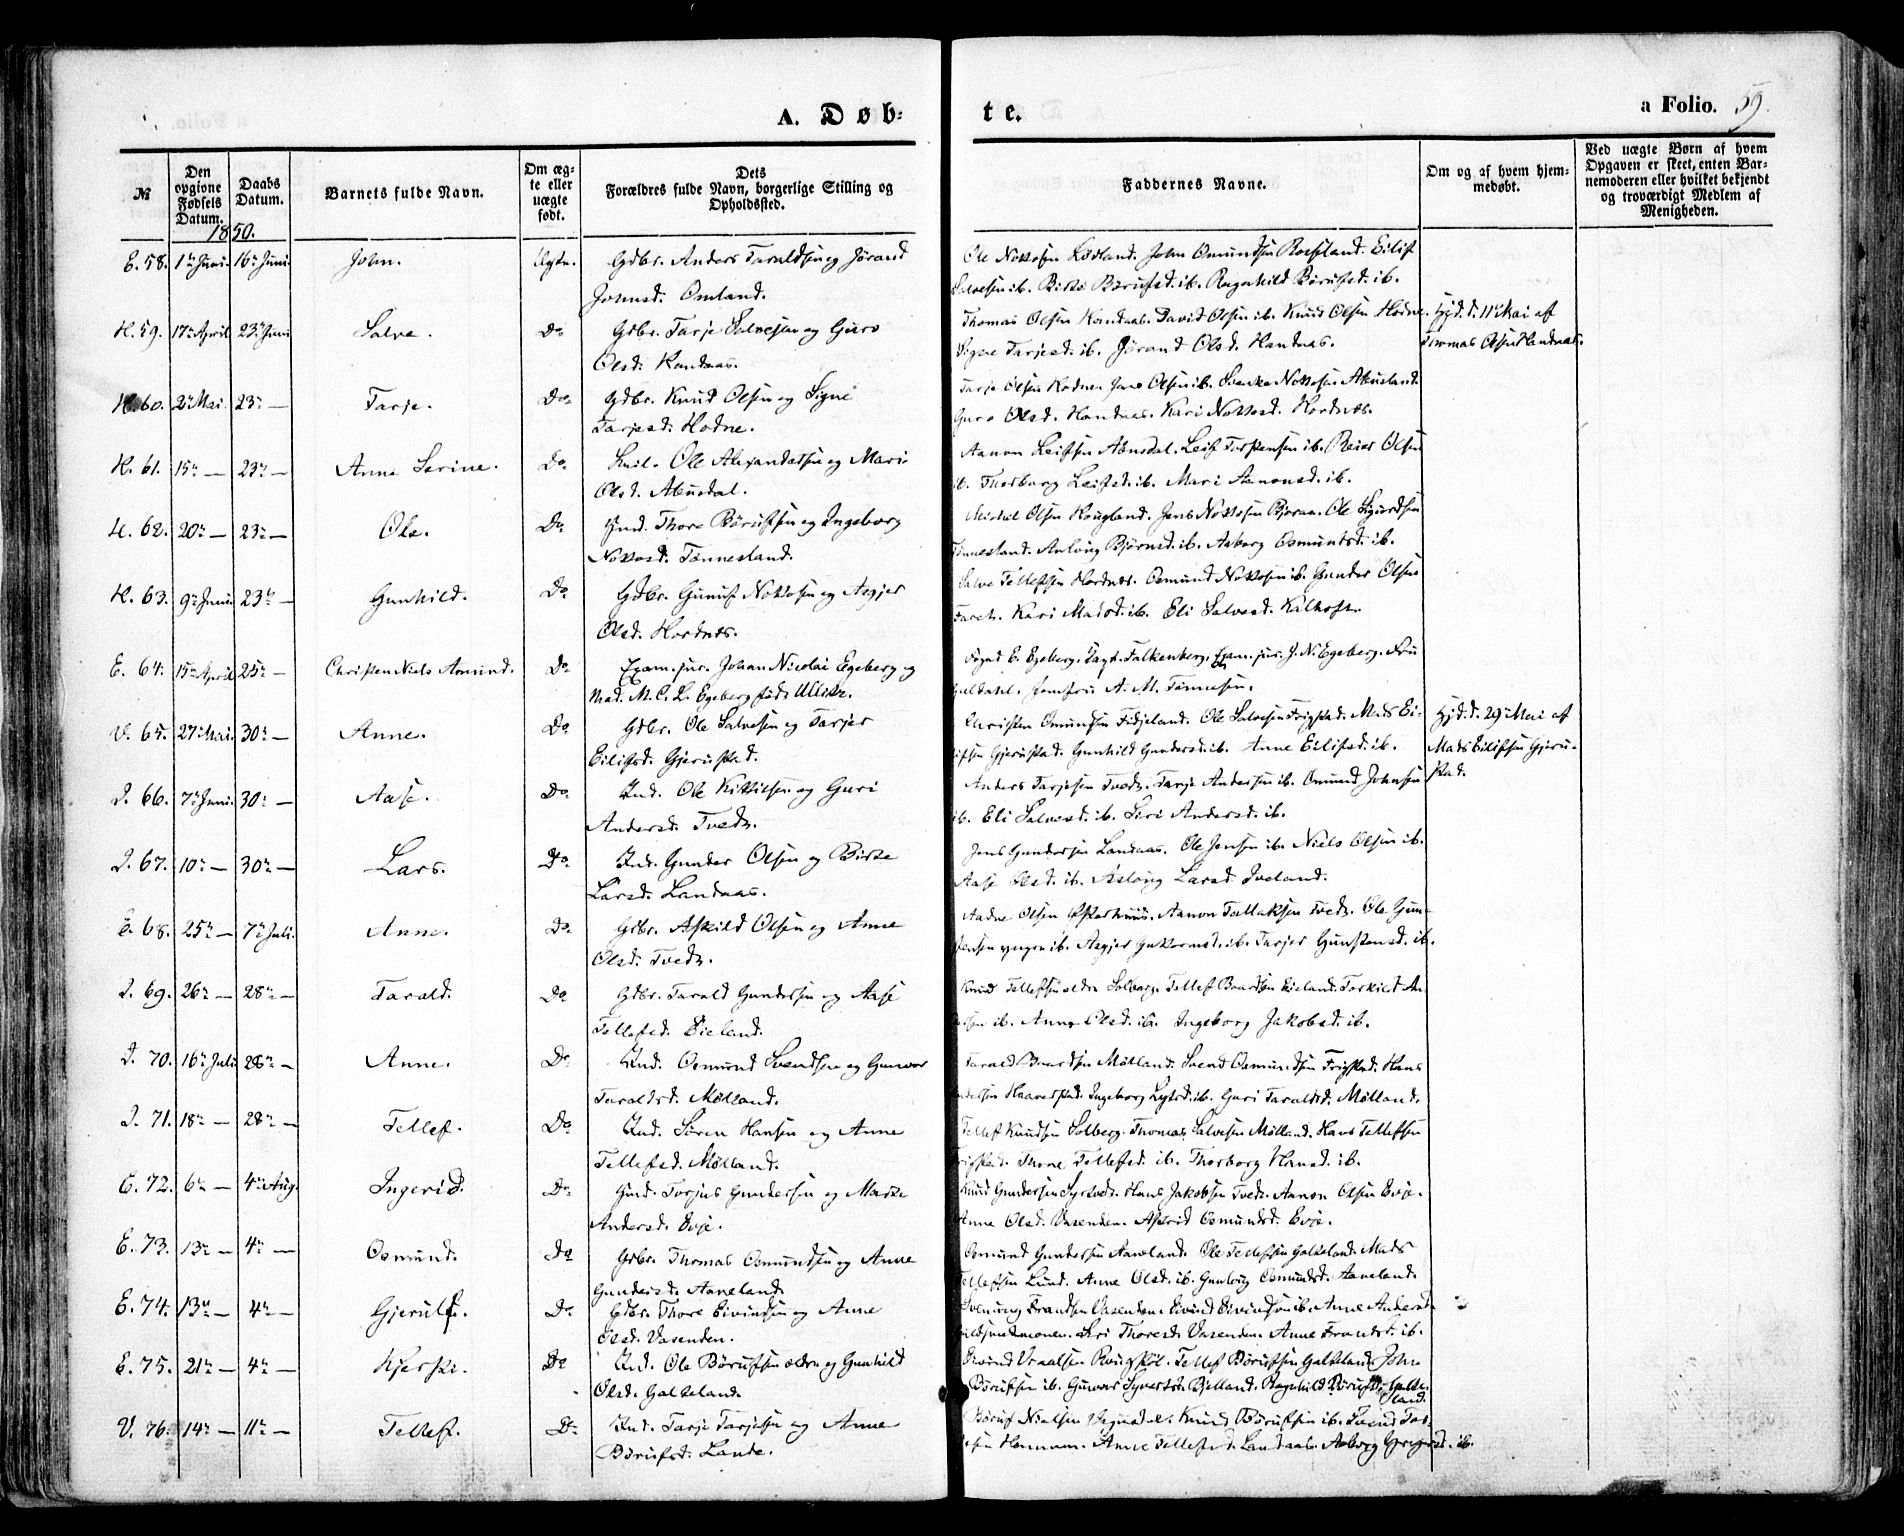 A. Døb-
te.
a Folio. 59.
№
Den opgivne Fødsels Datum.
Daabs Datum.
Barnets fulde Navn.
Om ægte eller uægte født.
Dets Forældres fulde Navn, borgerlige Stilling og Opholdssted.
Faddernes Navne.
Om og af hvem hjemmedøbt.
Ved uægte Børn af hvem Opgaven er skeet, enten Barnemoderen eller hvilket bekjendt og troværdigt Medlem af Menigheden.
1850.
E. 58. 1ste Juni. 16de Juni. John. Ægte. Gdbr. Anders Taraldsen og Jørand
Johnsd. Omland.
Ole Nottosen Lodland. John Osmundsen Rosseland. Eilif
Salvesen ib. Birte Børufsd. ib. Ragnhild Børufsd. ib.
H. 59. 17de April 23de Juni Salve. Do Gdbr. Tarje Salvesen og Guro
Olsd. Handaas.
Thomas Olsen Handaas. David Olsen ib. Knud Olsen Hodne.
Signe Tarjesd. ib. Jørand Olsd. Handnes.
Hjd. d. 11te Mai af
Thomas Olsen Handnas.
H. 60. 2den Mai. 23de — Tarje. Do Gdbr. Knud Olsen og Signe
Tarjesd. Hodne.
Tarje Olsen Hodne. Jens Olsen ib. Svenke Nottosen Abusland.
Guro Olsd. Handnes. Kari Nottosd. Hordnes.
H. 61. 15de — 23de — Anne Serine. Do Ole Alexandersen og Mari
Olsd. Abusdal.
Aanon Leifsen Abusdal. Leif Torstensen ib. Reier Olsen
ib. Thorborg Leifsd. ib. Mari Aanonsd. ib.
H. 62. 20de — 23de — Ole. Do Ind. Thore Børufsen og Ingeborg
Nottosd. Tønnesland.
Michel Olsen Hougland. Jens Nottosen Bjoraa. Ole Sigurdsen
Tønnesland. Anlaug Bjørnsd. ib. Asborg Osmundsd. ib.
H. 63. 9de Juni 23de — Gunhild. Do Gdbr. Gunuf Nottosen og Asgjer
Olsd. Hordnes.
Salve Tellefsen Hordnes. Osmund Nottosen ib. Gunder Olsen
Faret. Kari Madsd. ib. Eli Salvesd. Kiltoft.
E. 64. 15de April 25de — Christen Niels Amund. Do Exam. jur. Johan Nicolai Egeberg og
Mad. M. C. L. Egeberg født Ullitz.
Foged E. Egeberg. Falkenberg. Exam. jur. J. N. Egeberg. Fru
Guldahl. Jomfru A. M. Tønnesen.
V. 65. 27de Mai. 30de — Anne. Do Gdbr. Ole Salvesen og Tarjer
Eilifsd. Gjerustad.
Christen Osmundsen Fidjeland. Ole Salvesen Frigstad. Mads Ei-
lifsen Gjerustad. Gunhild Gundersd. ib. Anne Eilifsd. ib.
Hjd. d. 29de Mai af
Mads Eilifsen Gjeru-
stad.
I. 66. 7de Juni. 30de — Aase. Do Ind. Ole Kittilsen og Guri
Andersd. Tvedt.
Anders Tarjesen Tvedt. Tarje Andersen ib. Osmund Johnsen
ib. Eli Salvesd. ib. Siri Andersd. ib.
I. 67. 10de — 30de — Lars. Do Ind. Gunder Olsen og Birte
Larsd. Landaas.
Jens Gundersen Landaas. Ole Jensen ib. Niels Olsen ib.
Aase Olsd. ib. Aslaug Larsd. Iveland.
E. 68. 25de — 7de Juli. Anne. Do Gdbr. Askild Olsen og Anne
Olsd. Tvedt.
Aadne Olsen Østerhuus. Aanon Tallaksen Tvedt. Ole Gun-
stensen yngre ib. Asgjer Guttormsd. ib. Tarjer Gunstensd. ib.
I. 69. 26de — 28de — Tarald. Do Gdbr. Tarald Gundersen og Aase
Tellefsd. Eieland.
Knud Tellefsen ældre Solberg. Tellef Baardsen Eieland. Torkild An-
dersen ib. Anne Olsd. ib. Ingeborg Jakobsd. ib.
I. 70. 16de Juli 28de — Anne. Do Ind. Osmund Svendsen og Gunvor
Taraldsd. Mølland.
Tarald Baardsen Mølland. Svend Osmundsen Frigstad. Hans
Andersen Haaverstad. Ingeborg ib. Guri Taraldsd. Mølland.
I. 71. 18de — 28de — Tellef. Do Ind. Søren Hansen og Anne
Tellefsd. Mølland.
Tellef Knudsen Solberg. Thomas Salvesen Mølland. Hans Tellefsen
Frigstad. Thone Tellefsd. ib. Thorborg Hansd. ib.
E. 72. 6te — 4de Aug. Ingerid. Do Ind. Torjus Gundersen og Marte
Andersd. Evje.
Knud Gundersen Syrtveit. Hans Jakobsen Tvedt. Aanon Olsen Evje.
Anne Olsd. Vasenden. Astrid Osmundsd. Evje.
E. 73. 13de — 4de — Osmund. Do Gdbr. Thomas Osmundsen og Anne
Gundersd. Aaneland.
Osmund Gundersen Aaneland. Ole Tellefsen Galteland. Mads
Tellefsen Lund. Anne Olsd. ib. Gunlaug Osmundsd. Aaneland.
E. 74. 13de — 4de — Gjerulf. Do Gdbr. Thore Eivindsen og Anne
Olsd. Vasenden.
Svenung Frandsen Vasenden. Eivind Eivindsen ib. Anne Andersd.
Siri Thoresd. Vasenden. Anne Frandsd. ib.
E. 75. 21de — 4de — Kjersti. Do Ind. Ole Børufsen ældre og Gunhild
Olsd. Galteland.
Eivind Vraalsen. Tellef Børufsen Galteland. John
Børufsen ib. Gunvor Syvertsd. Bjelland. Ragnhild Børufsd. Galte-
land.
V. 76. 14de — 11te — Tellef. Do Ind. Tarje Tarjesen og Anne
Børufsd. Lande.
Børuf Nielsen Vegusdal. Knud Børufsen ib. Svend Tar-
jesen. Anne Tellefsd. Landaas. Asborg Gregersd. ib.